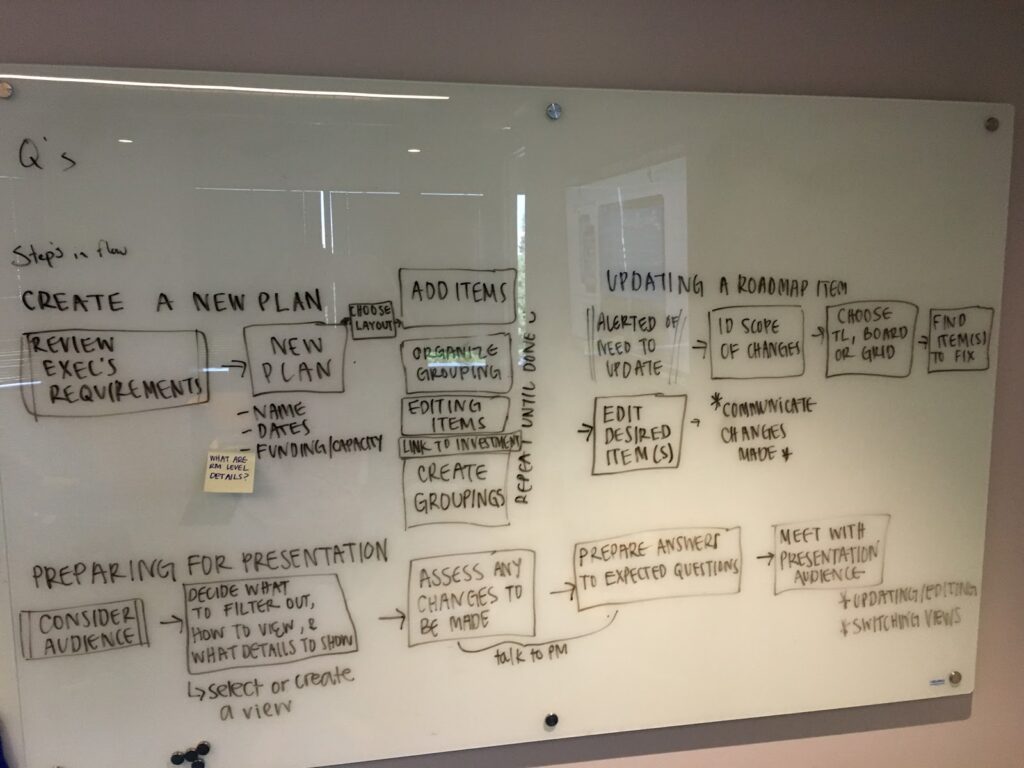 Q's
Steps in flow
CREATE A NEW PLAN
REVIEW
EXEC'S
REQUIREMENTS
NEW
PLAN
- NAME
- DATES
- FUNDING/CAPACITY
WHAT ARE
RM LEVEL
DETAILS?
CHOOSE
LAYOUT
ADD ITEMS
ORGANIZE
GROUPING
EDITING
ITEMS
LINK TO INVESTMENT
CREATE
GROUPINGS
REPEAT UNTIL DONE
UPDATING A ROADMAP ITEM
ALERTED OF/
NEED TO
UPDATE
ID SCOPE
OF CHANGES
CHOOSE
TL, BOARD
OR GRID
FIND
ITEM(S)
TO FIX
EDIT
DESIRED
ITEM(S)
*COMMUNICATE
CHANGES
MADE *
PREPARING FOR PRESENTATION
CONSIDER
AUDIENCE
DECIDE WHAT
TO FILTER OUT,
HOW TO VIEW, &
WHAT DETAILS TO SHOW
↳ select or create
a view
ASSESS ANY
CHANGES TO
BE MADE
talk to PM
PREPARE ANSWERS
TO EXPECTED QUESTIONS
MEET WITH
PRESENTATION
AUDIENCE
* UPDATING/EDITING
* SWITCHING VIEWS